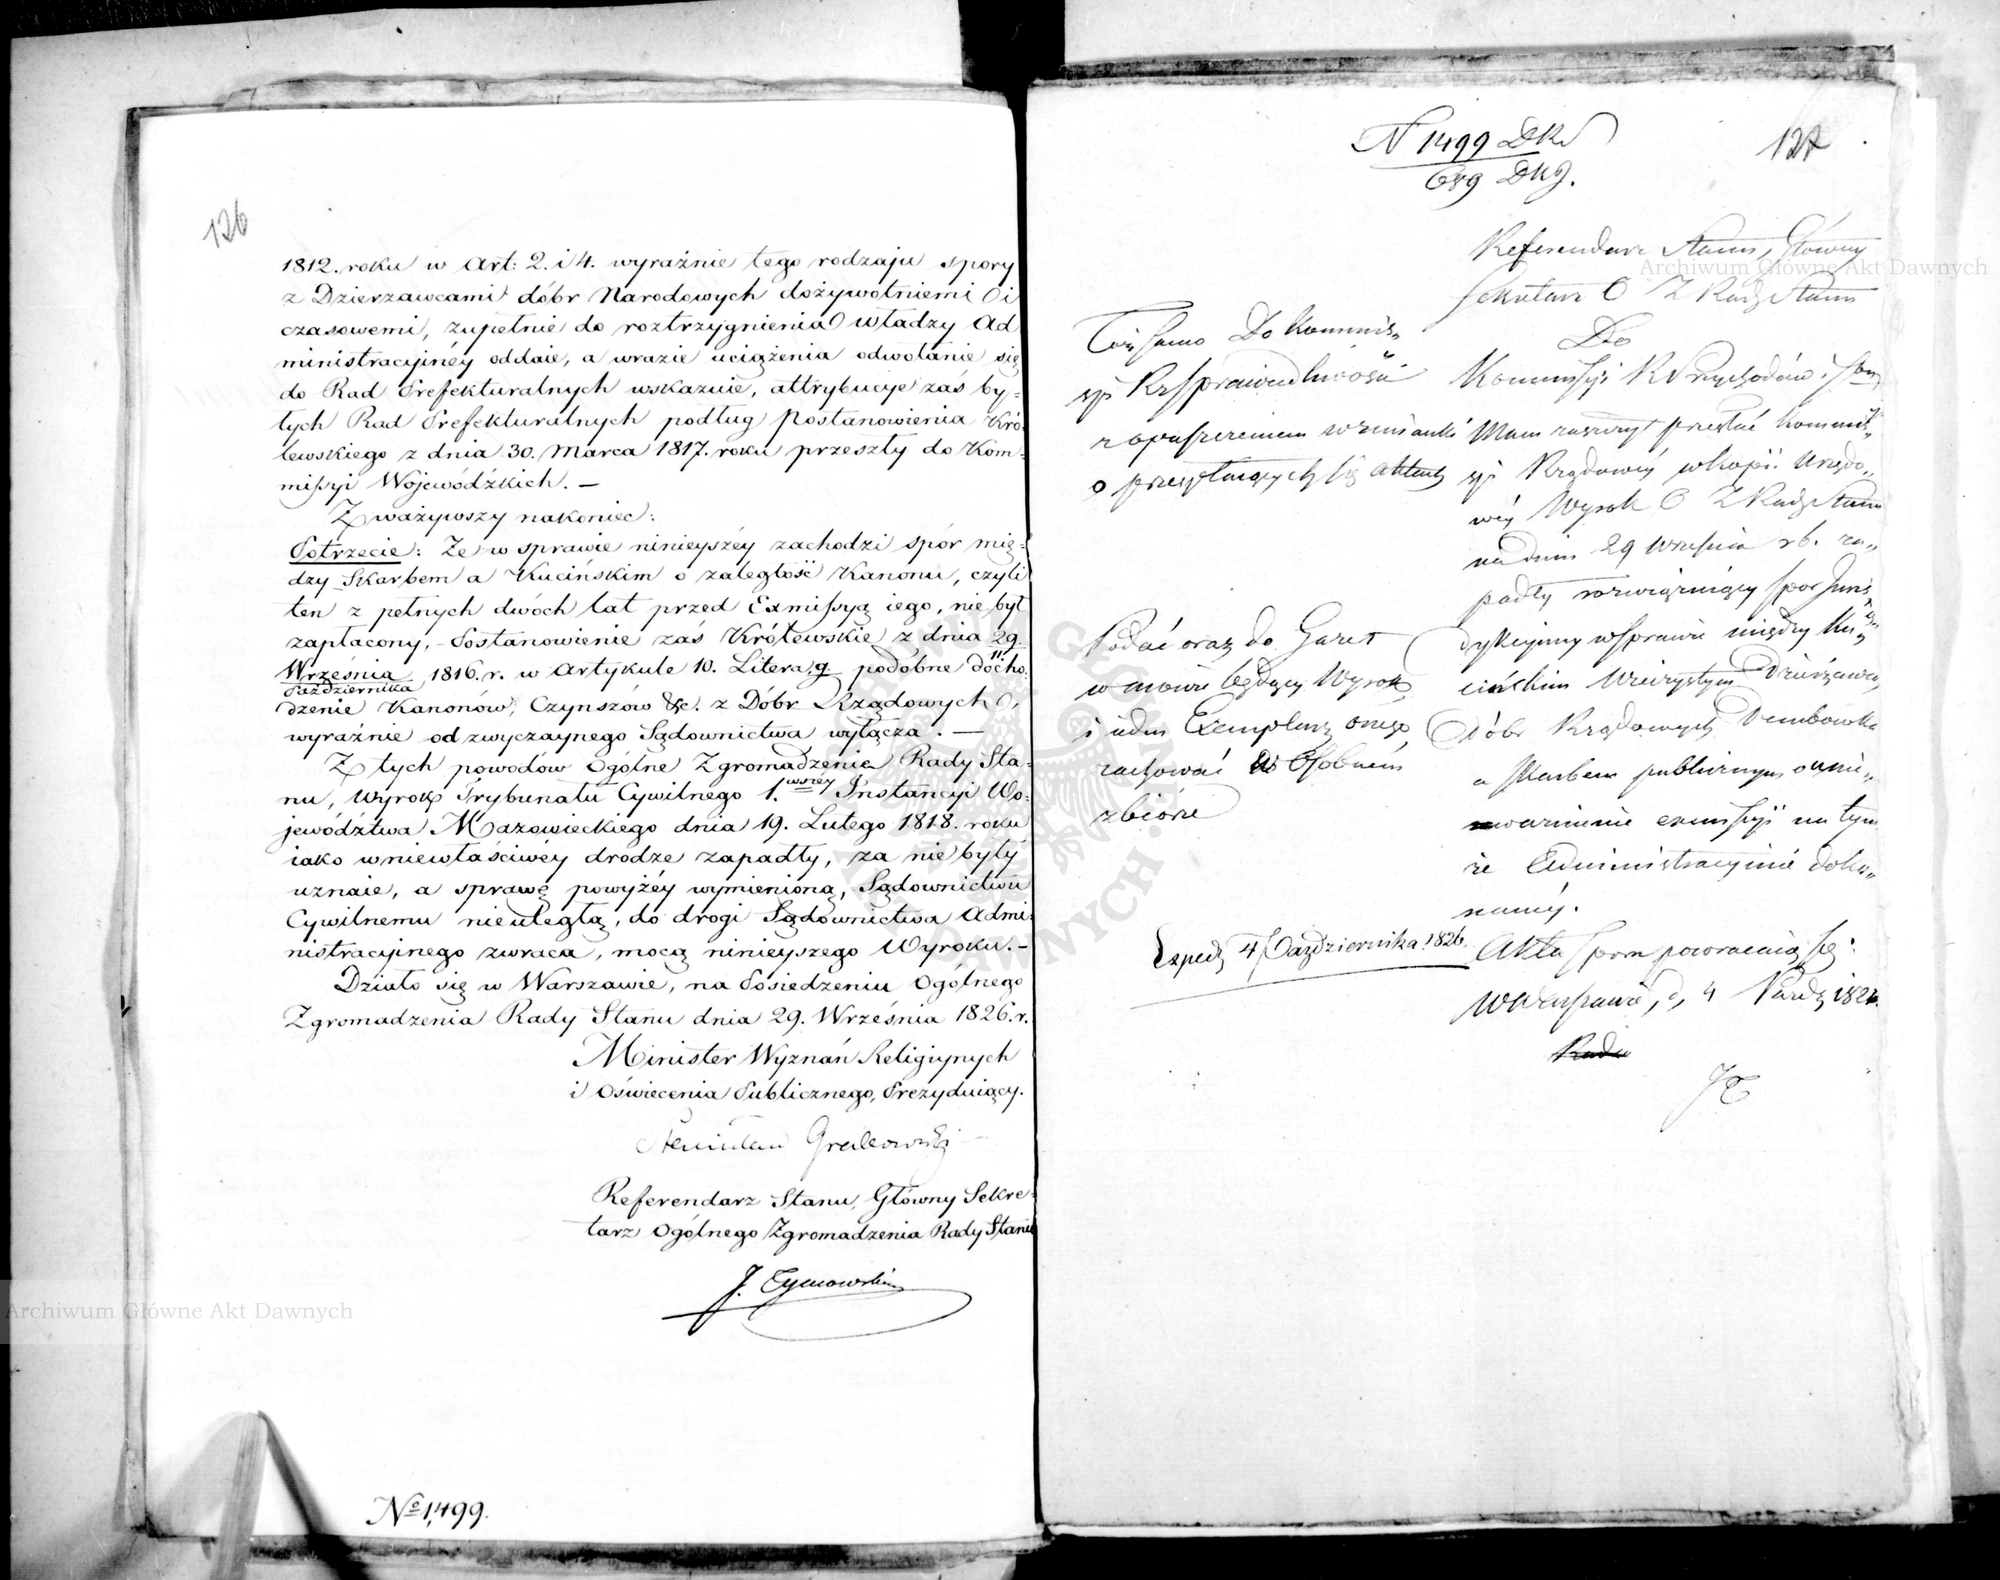 126
1812. roku w Art: 2. i 4. wyraźnie tego rodzaju spory
z Dzierzawcami dóbr Narodowych dożywotniemi i
czasowemi, zupełnie do roztrzygnienia władzy Ad
ministracyjnéy oddaie, a wrazie uciążenia odwołanie się
do Rad Prefekturalnych wskazuie, attrybucye zaś by-
łych Rad Prefekturalnych podług Postanowienia Kró-
lewskiego z dnia 30. Marca 1817. roku przeszły do Kom-
missyi Wojewódzkich. —
Zważywszy nakoniec:
Potrzecie: Że w sprawie ninieyszéy zachodzi spór mię-
dzy Skarbem a Kucińskim o zaległość Kanonu, czyli
ten z pełnych dwóch lat przed Exmissyą iego, nie był
zapłacony, - Postanowienie zaś Królewskie z dnia 29.
Września 1816. r. w Artykule 10. Litera g podobne docho-
Października 11.
dzenie Kanonów, Czynszów &c. z Dóbr Rządowych,
wyraźnie od zwyczaynego Sądownictwa wyłącza. —
Z tych powodów Ogólne Zgromadzenie Rady Sta-
nu, Wyrok Trybunału Cywilnego 1.wszey Instancyi Wo-
jewództwa Mazowieckiego dnia 19. Lutego 1818. roku
iako w niewłaściwéy drodze zapadły, za niebyły
uznaie, a sprawę powyżéy wymienioną, Sądownictwu
Cywilnemu nieuległą, do drogi Sądownictwa Admi-
nistracyjnego zwraca, mocą ninieyszego Wyroku. —
Działo się w Warszawie, na Posiedzeniu Ogólnego
Zgromadzenia Rady Stanu dnia 29. Września 1826. r.
Minister Wyznań Religiynych
i Oświecenia Publicznego, Prezyduiący.
Stanisław Grabowski
Referendarz Stanu, Główny Sekre-
tarz Ogólnego Zgromadzenia Rady Stanu
J. Tymowski
No 1499.
N 1499 DKs
689 DKg.
127
Referendarz Stanu, Główny
Sekretarz O Z Rady Stanu
Do
Kommissyi R Przychodów i Skar
Mam zaszczyt przesłać Kommis-
syi Rządowéy w kopii Urzędo-
wéy Wyrok O Z Rady Stanu
na dniu 29 Września r b. za-
padły rozwiązuiący spór Juris-
dykcyjny w Sprawie między Ku-
cińskim Wieczystym Dzierżawcą
Dóbr Rządowych Dembowka
a Skarbem publicznym o unie-
ważnienie exmissyi na tym
że Administracyinie doko-
nanéy.
Akta sporu powracaią się.
w Warszawie, d, 4 Paźdz 1826.
JT
Toż samo Do Kommis-
syi R Sprawiedliwości
z opuszczeniem wzmianki
o przesyłaiących się aktach
Podać oraz do Gazet
w mowie będący Wyrok
i ieden Exemplarz onego
zachować w Osobném
zbiorze
Exped 4 Października 1826.
Archiwum Główne Akt Dawnych
Archiwum Główne Akt Dawnych
ARCHIWUM GŁÓWNE AKT DAWNYCH